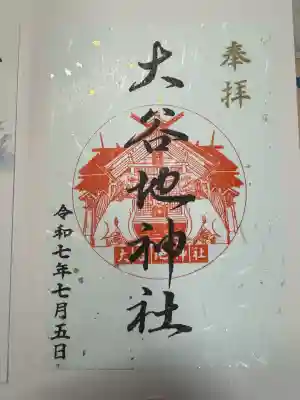 奉拝
大谷地神社
大谷地神社
令和七年七月五日